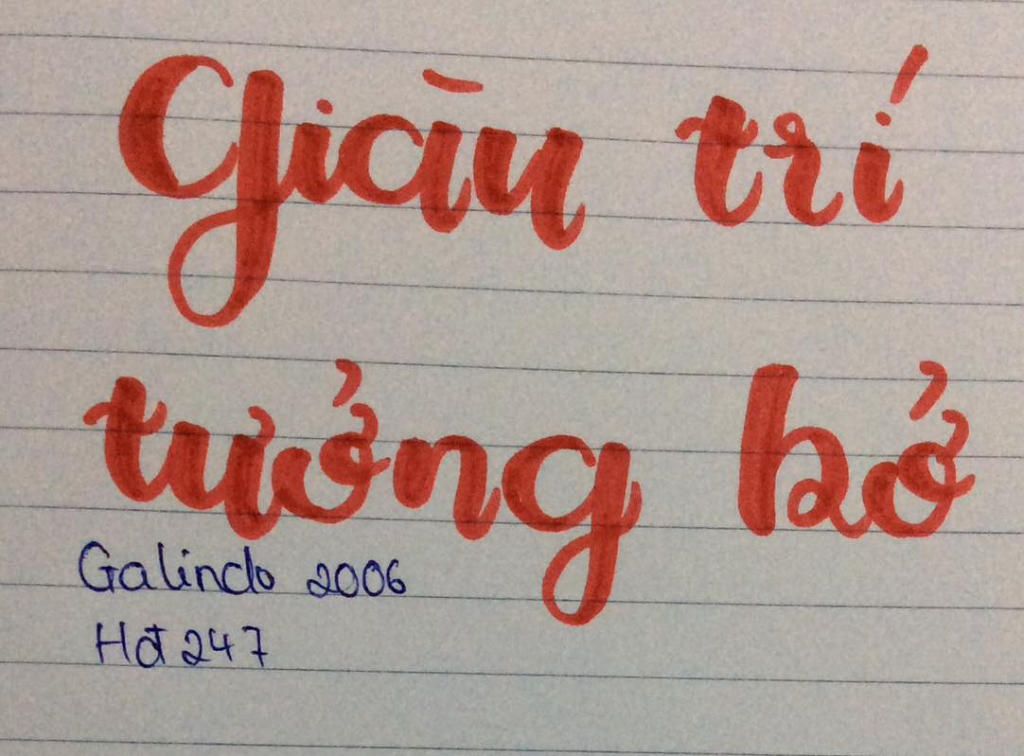 Giàu trí
tưởng bở
Galindo 2006
Hot 247